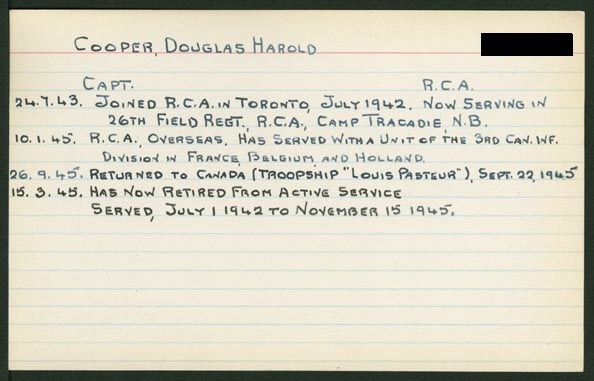 COOPER, DOUGLAS HAROLD
CAPT. R.C.A.
24.7.43. JOINED R.C.A. IN TORONTO, JULY 1942. NOW SERVING IN
26TH FIELD REGT., R.C.A., CAMP TRACADIE, N.B.
10.1.45. R.C.A., OVERSEAS. HAS SERVED WITH A UNIT OF THE 3RD CAN. INF.
DIVISION IN FRANCE, BELGIUM, AND HOLLAND.
26.9.45. RETURNED TO CANADA (TROOPSHIP "LOUIS PASTEUR"), SEPT. 22, 1945
15.3.45. HAS NOW RETIRED FROM ACTIVE SERVICE
SERVED, JULY 1 1942 TO NOVEMBER 15 1945.